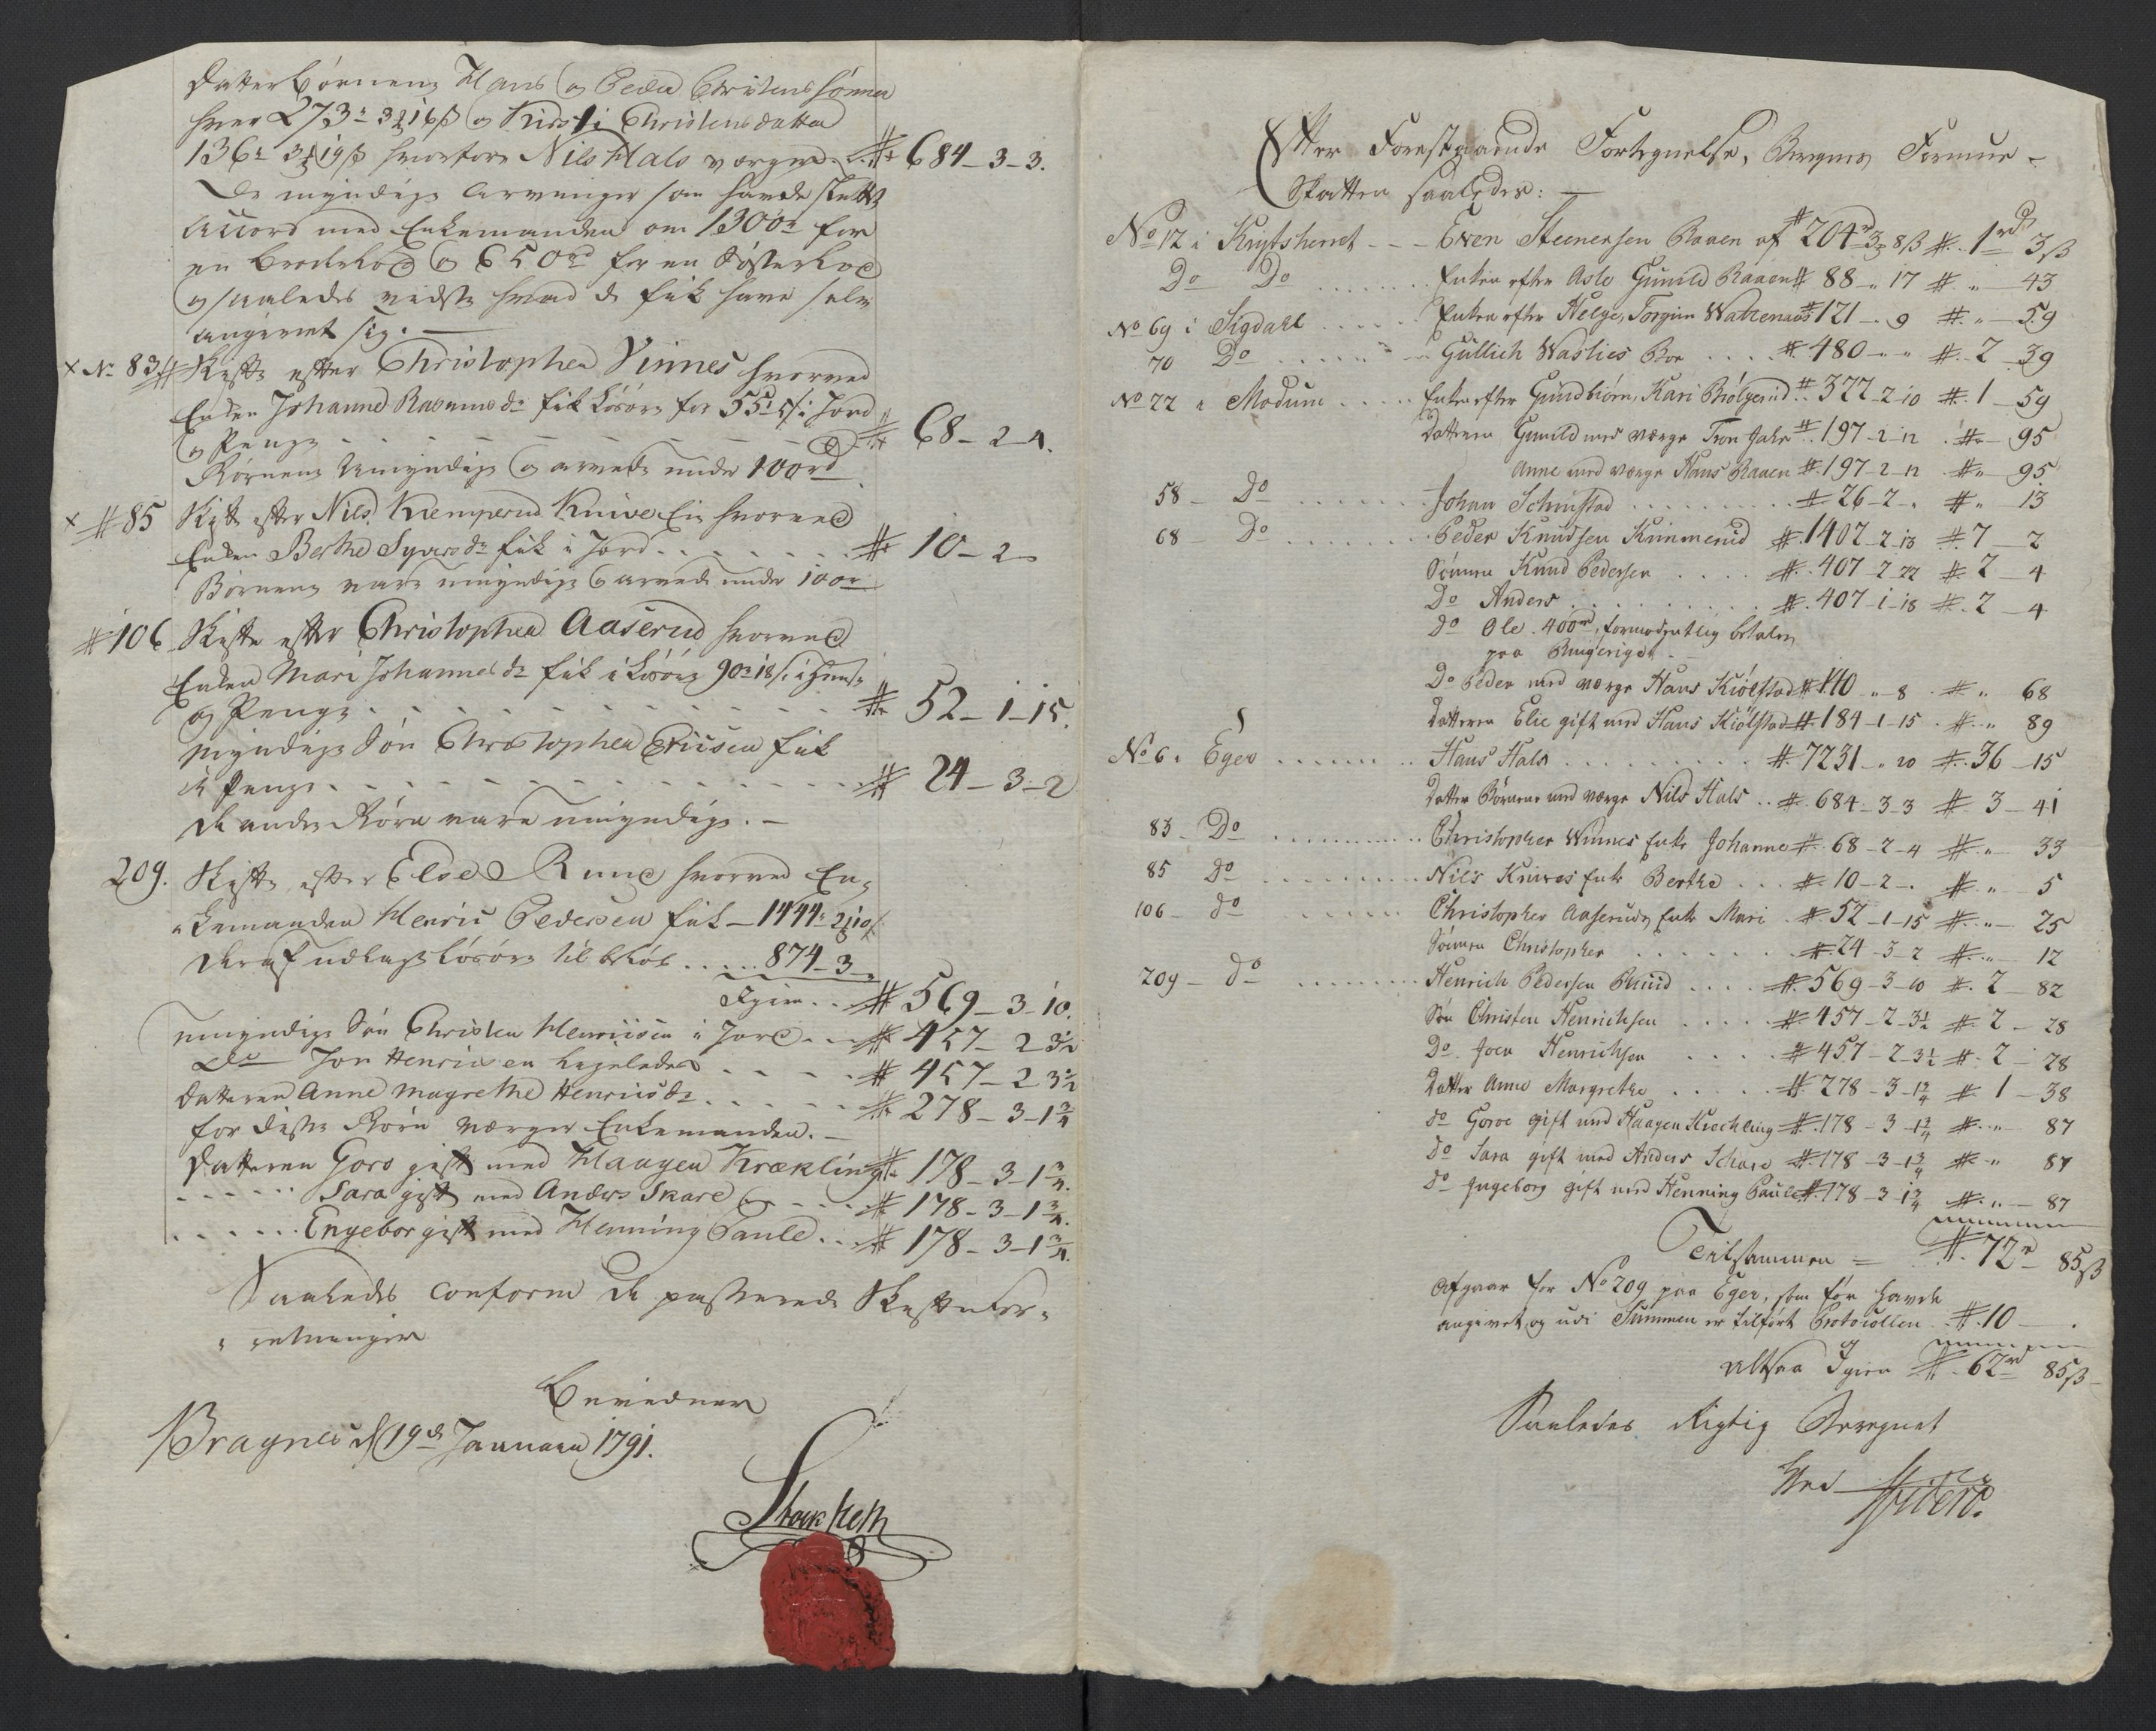 Datter Børnene Hans og Peder Christens Sønner
hver 273 r 3 16 ß og Kirsti Christensdatter
136 r 3 19 ß hvorfore Nils Hals værger # 684 - 3 - 3.
De myndige Arvinger som havde sluttet
Accord med Enkemanden om 1300 r for
en Broderlod og 650 rd for en Søsterlod
og saaledes vidste hvad de fik have selv
angivet sig. —
x No 83 # Skifte efter Christopher Vinnes hvorved
Enken Johanne Rasmusdr fik Løsøre for 55 i Jord
og Penge # 68 - 2 - 4.
Børnene Umyndige og arvede under 100 rd
x # 85 Skifte efter Nils Kemperud Knive Eie hvorved
Enken Berthe Syversdr fik i Jord # 10 - 2 -
Børnene vare umyndige og arvede under 100 r
# 106 Skifte efter Christopher Aaserud hvorved
Enken Mari Johannesdr fik i Løsøre 90 r 18 ß i
og Penge # 52 - 1 - 15.
Myndige Søn Christopher fik
i Penge # 24 - 3 - 2
De andre Børn vare umyndige. —
209. Skifte efter Else Rune hvorved En-
kemanden Henric Pedersen fik — 1444 r 2 10 ß
Deraf udlagt Løsøre til beløb 874 - 3 -
Igien # 569 - 3 - 10.
umyndige Søn Christen Henricsen i Jord # 457 - 2 3½
Do Jon Henricsen ligeledes # 457 - 2 3½
Datteren Anne Magrethe Henricsdr # 278 - 3 - 1¾
for disse Børn værger Enkemanden. —
Datteren Goro gift med Haagen Kræckling # 178 - 3 - 1¾.
Sara gift med Anders Skare # 178 - 3 - 1¾.
Engebor gift med Henning Paule # 178 - 3 - 1¾.
Saaledes conform de passerede Skiftefor-
retninger
Bevidner
Bragnes d 19de Januarii 1791.
Stockfleth
Efter Forestaaende Fortegnelse, Beregnes Formue-
Skatten saaledes: —
No 12 i Krydsherret - - - Even Steenersen Raaen af # 204 rd 3 8 ß # 1 rd 3 ß
Do Do Enken efter Aslo Gunild Raaen # 88 - " 17 # " - 43
No 69 i Sigdahl Enken efter Helge, Torgun Watnenaas # 121 - " 9 # " - 59
70 Do Gullich Waslies Boe # 480 - " " # 2 - 39
No 22 i Modum Enken efter Gundbiørn, Kari Bølgerud # 377 - 2 10 # 1 - 59
Datteren Gunild med værge Tron Jahr # 197 - 2 - 12 # - 95
Anne med værge Hans Raaen # 197 - 2 - 12 # " 95
58 - Do Johan Schinstad # 26 - 2 - " # " 13
68 - Do Peder Knudsen Kimmerud # 1402 - 2 - 13 # 7 - 2
Sønnen Knud Pedersen # 407 - 2 - 22 # 2 - 4
Do Anders # 407 - 1 - 18 # 2 - 4
do Ole 400 rd, formodentlig betales
paa Ringerige. -
Do Peder med værge Hans Kiølstad # 140 - " 8 # " 68
Datteren Elie gift med Hans Kiølstad # 184 - 1 - 15 # " 89
No 6 i Eger Hans Hals # 7231 - " 20 # 36 - 15
Datter Børnene med værge Nils Hals # 684 - 3 3 # 3 - 41
83 - Do Christopher Winnes Enke Johanne # 68 - 2 - 4 # " - 33
85 Do Nils Knives Enke Berthe # 10 - 2 - . # " - 5
106 - do Christopher Aaseruds Enke Mari # 52 - 1 - 15 # " - 25
Sønnen Christopher # 24 - 3 - 2 # " - 12
209 - do Henrich Pedersen Ruud # 569 - 3 - 10 # 2 - 82
Søn Christen Henrichsen # 457 - 2 - 3½ # 2 - 28
Do Joen Henrichsen # 457 - 2 3½ # 2 - 28
Datter Anne Margrethe # 278 - 3 - 1¾ # 1 - 38
do Goroe gift med Haagen Krechling # 178 - 3 - 1¾ # " - 87
Do Sara gift med Anders Schare # 178 - 3 - 1¾ # " 87
do Ingeborg gift med Henning Paule # 178 - 3 1¾ # " - 87
Tilsammen = # 72 rd 85 ß
Afgaar for No 209 paa Eger, som før havde
angivet, og udi Summen er tilført Protocollen # 10 - .
Altsaa Igien # 62 rd 85 ß
Saaledes Rigtig Beregnet
Ved